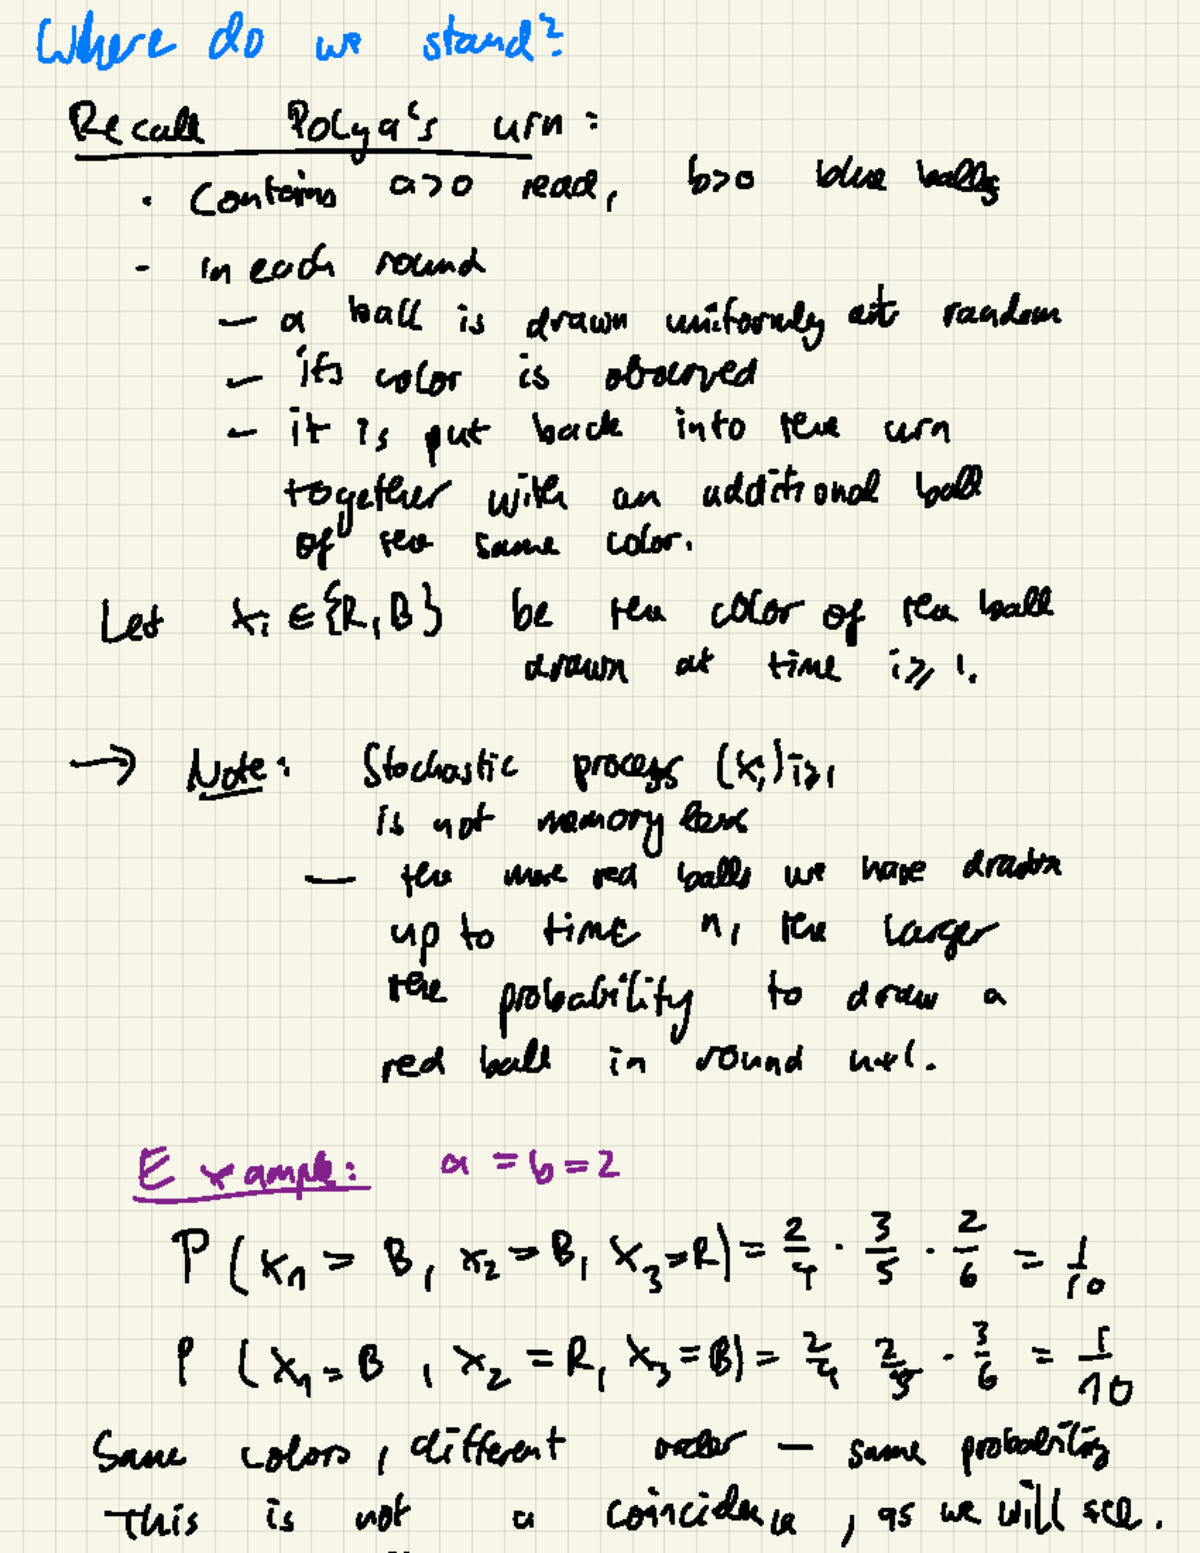 Where do we stand?
Recall Polya's urn:
· Contains a>0 read, b>0 blue balls
- in each round
– a ball is drawn uniformly at random
– its color is observed
– it is put back into the urn
together with an additional ball
of the same color.
Let X_i ∈ {R, B} be the color of the ball
drawn at time i ≥ 1.
→ Note: Stochastic process (X_i)_{i≥1}
is not memory less
– the more red balls we have drawn
up to time n, the larger
the probability to draw a
red ball in round n+1.
Example: a = b = 2
P (X_1 = B, X_2 = B, X_3 = R) = 2/4 · 3/5 · 2/6 = 1/10
P (X_1 = B, X_2 = R, X_3 = B) = 2/4 2/5 · 3/6 = 1/10
Same colors, different order – same probability
This is not a coincidence, as we will see.